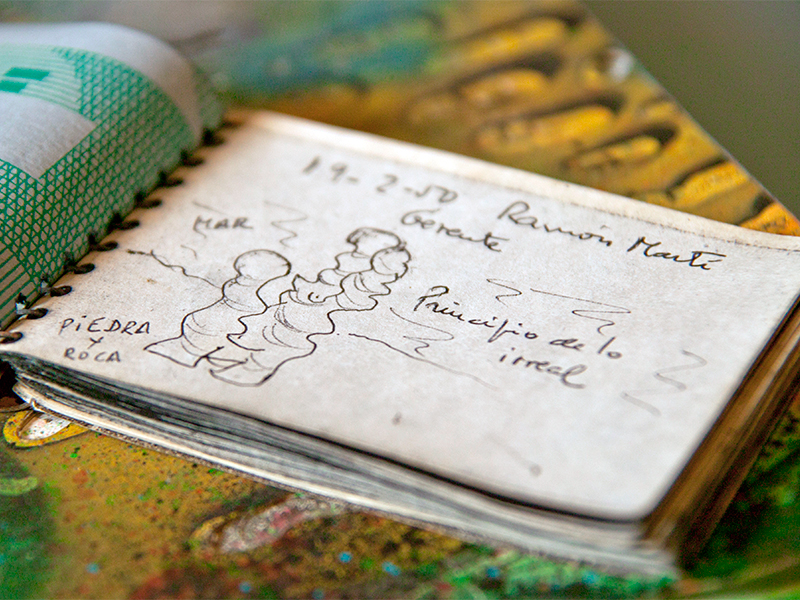 19-2-50 Ramón Martí
Gerente
MAR
Principio de lo
irreal
PIEDRA
Y
ROCA